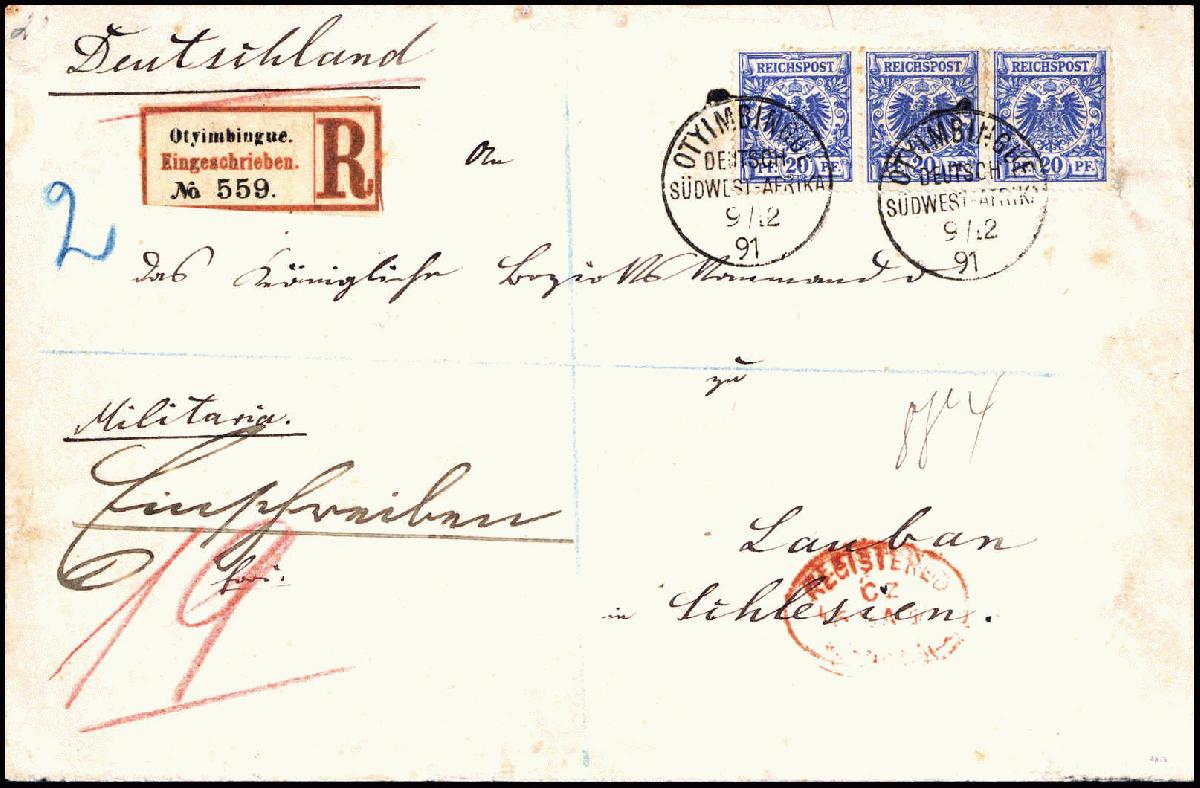 Deutschland
REICHSPOST REICHSPOST REICHSPOST
PF. 20 PF. 20 PF. 20 PF.
Otyimbingue.
Eingeschrieben.
№ 559.
R
OTYIMBINGUE
DEUTSCH
SÜDWEST-AFRIKA
9/12
91
OTYIMBINGUE
DEUTSCH
SÜDWEST-AFRIKA
9/12
91
An
2
das Königliche Bezirks Kommando
zu
Militaria.
Einschreiben
frei.
19
Lauban
in Schlesien.
REGISTERED